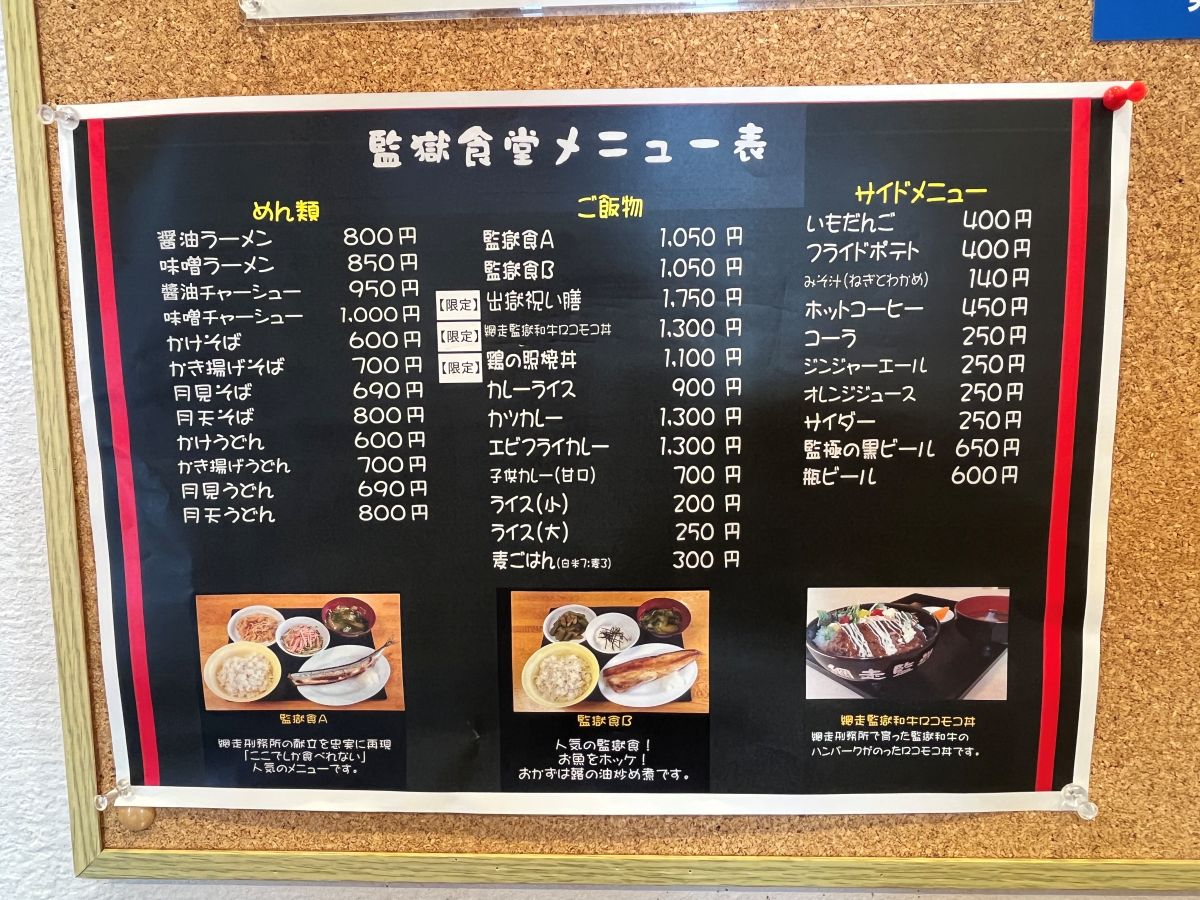 監獄食堂メニュー表
めん類
醤油ラーメン 800円
味噌ラーメン 850円
醤油チャーシュー 950円
味噌チャーシュー 1,000円
かけそば 600円
かき揚げそば 700円
月見そば 690円
月天そば 800円
かけうどん 600円
かき揚げうどん 700円
月見うどん 690円
月天うどん 800円
ご飯物
監獄食A 1,050円
監獄食B 1,050円
【限定】出獄祝い膳 1,750円
【限定】網走監獄和牛ロコモコ丼 1,300円
【限定】鶏の照焼丼 1,100円
カレーライス 900円
カツカレー 1,300円
エビフライカレー 1,300円
子供カレー(甘口) 700円
ライス(小) 200円
ライス(大) 250円
麦ごはん(白米7:麦3) 300円
サイドメニュー
いもだんご 400円
フライドポテト 400円
みそ汁(ねぎとわかめ) 140円
ホットコーヒー 450円
コーラ 250円
ジンジャーエール 250円
オレンジジュース 250円
サイダー 250円
監極の黒ビール 650円
瓶ビール 600円
監獄食A
網走刑務所の献立を忠実に再現
「ここでしか食べれない」
人気のメニューです。
監獄食B
人気の監獄食!
お魚をホッケ!
おかずは蕗の油炒め煮です。
網走監獄
網走監獄和牛ロコモコ丼
網走刑務所で育った監獄和牛の
ハンバークがのったロコモコ丼です。